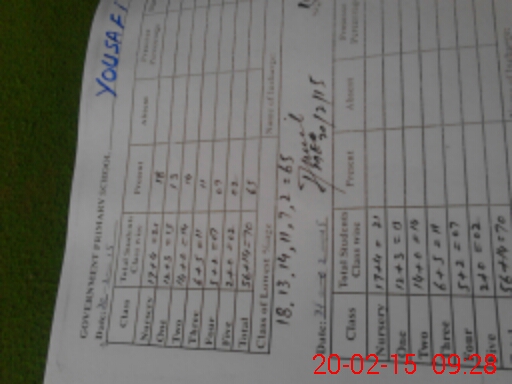 GOVERNMENT PRIMARY SCHOOL YOUSAFI
Date:
Class Total Students Class wise Present Absent Present Percentage
Nursery 17+4=21 18
One 12+3=15 13
Two 14+0=14 14
Three 6+5=11 11
Four 5+2=07 07
Five 2+0=02 02
Total 56+14=70 65
Class of Lowest %age Name of Incharge
18, 13, 14, 11, 7, 2 = 65
20/2/15
Date:
Class Total Students Class wise Present Absent Present Percentage
Nursery 17+4=21
One 12+3=15
Two 14+0=14
Three 6+5=11
Four 5+2=07
Five 2+0=02
56+14=70
20-02-15 09:28